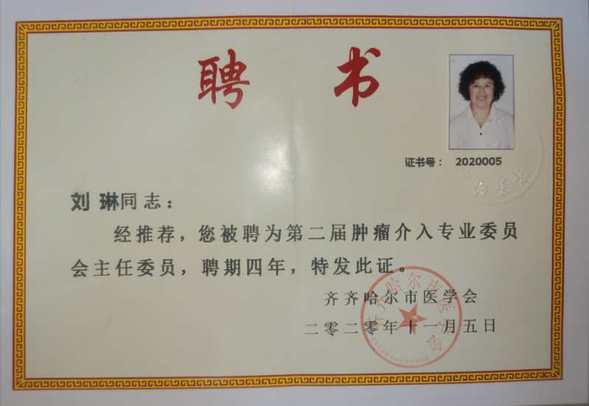 聘书
证书号： 2020005
刘 琳同志：
经推荐，您被聘为第二届肿瘤介入专业委员
会主任委员，聘期四年，特发此证。
齐齐哈尔市医学会
二零二零年十一月五日